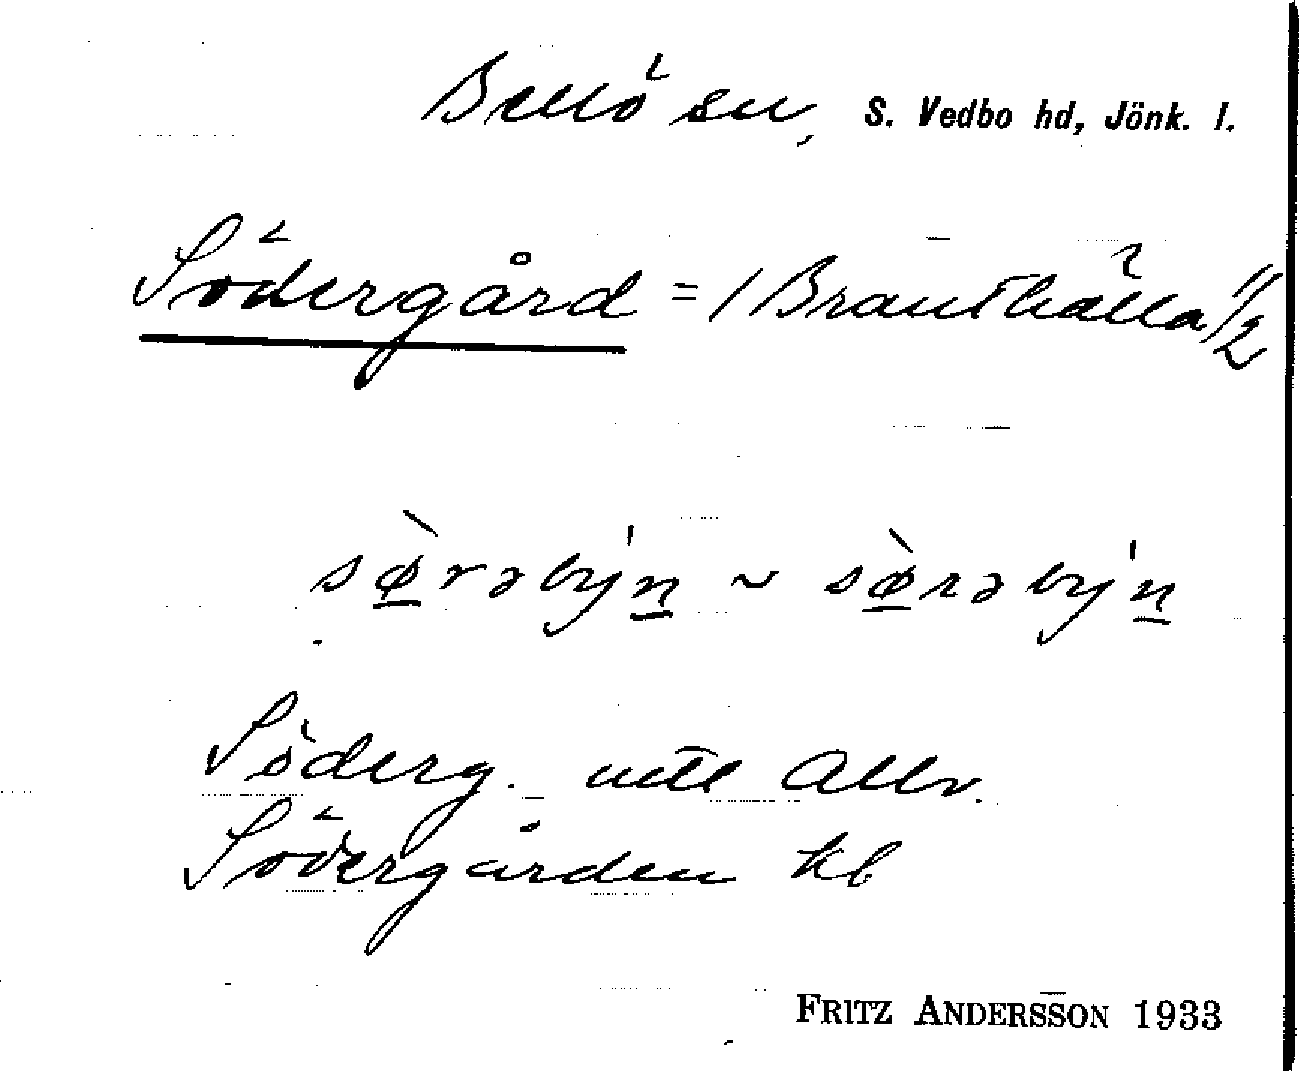 Bellö sn, S. Vedbo hd, Jönk. l.
Södergård = / Branthälla 1/2
sø̀rəbýn ~ sø̀rəbýn
Söderg. utl Allv.
Södergården kb
FRITZ ANDERSSON 1933